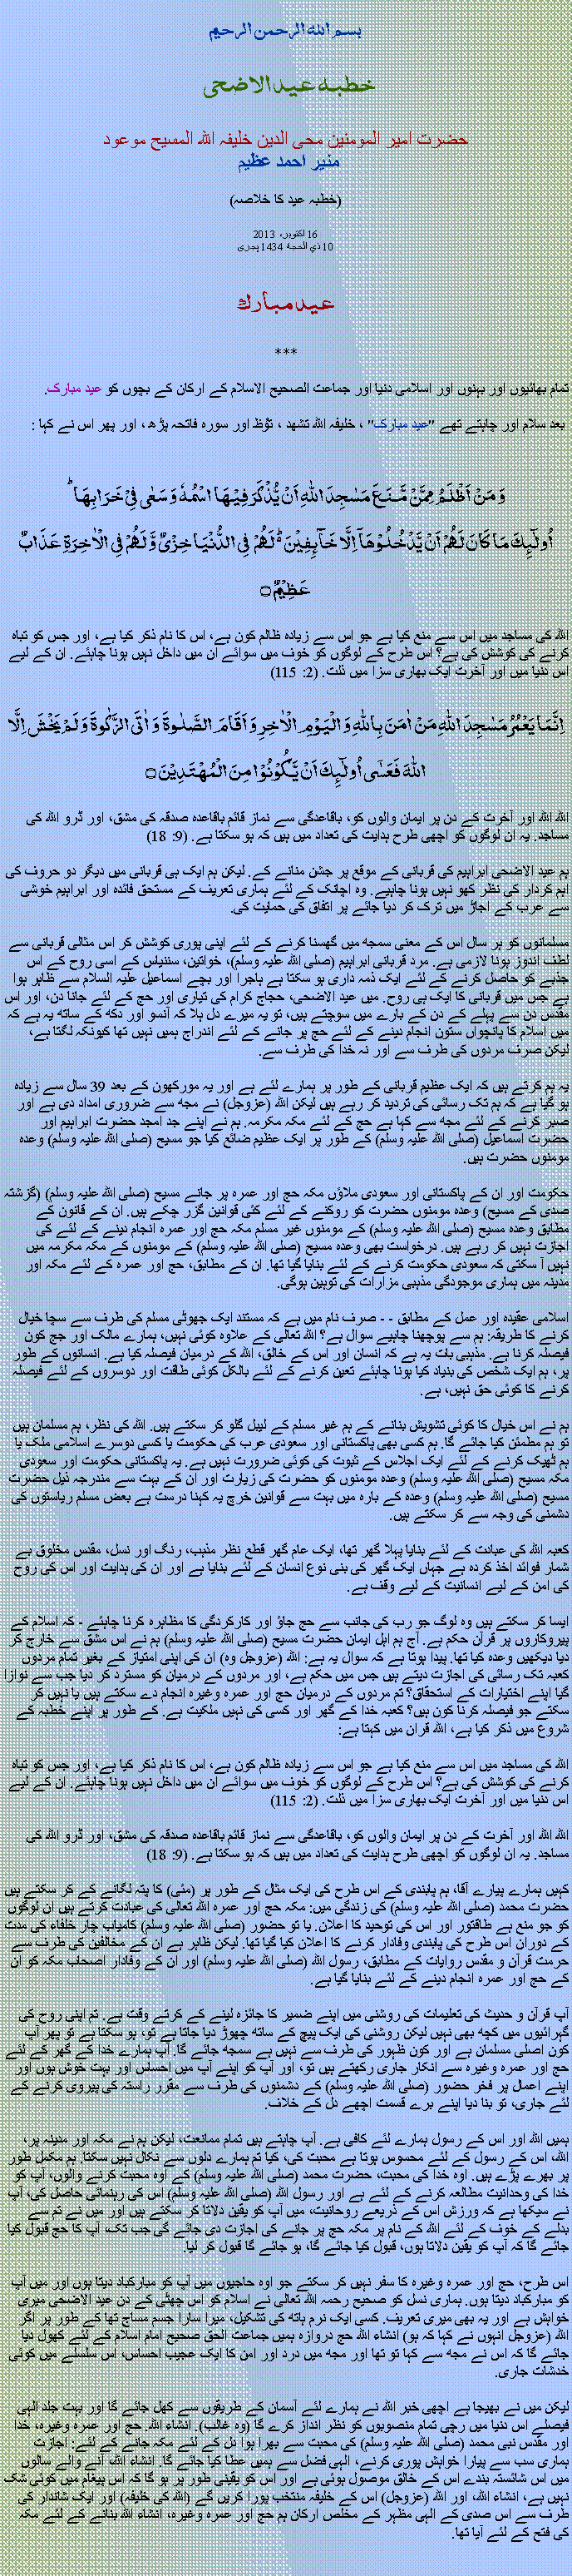 بسم الله الرحمن الرحيم
خطبہ عيد الاضحى
حضرت امیر المومنین محی الدین خلیفہ اللہ المسیح موعود
منیر احمد عظیم
(خطبہ عید کا خلاصہ)
16 اکتوبر، 2013
10 ذي الحجة 1434 ہجری
عید مبارک
***
تمام بھائیوں اور بہنوں اور اسلامی دنیا اور جماعت الصحیح الاسلام کے ارکان کے بچوں کو عید مبارک.
بعد سلام اور چاہتے تھے "عید مبارک" ، خلیفہ اللہ تشهد ، تؤظ اور سورہ فاتحہ پڑھ ، اور پھر اس نے کہا :
وَمَنْ اَظْلَمُ مِمَّنْ مَّنَعَ مَسٰجِدَ اللّٰهِ اَنْ يُّذْكَرَ فِيْهَا اسْمُهٗ وَسَعٰى فِيْ خَرَابِهَا ؕ
اُولٰٓئِكَ مَا كَانَ لَهُمْ اَنْ يَّدْخُلُوْهَآ اِلَّا خَآئِفِيْنَ ؕ لَهُمْ فِى الدُّنْيَا خِزْىٌ وَّلَهُمْ فِى الْاٰخِرَةِ عَذَابٌ
عَظِيْمٌ
اللہ کی مساجد میں اس سے منع کیا ہے جو اس سے زیادہ ظالم کون ہے، اس کا نام ذکر کیا ہے، اور جس کو تباہ
کرنے کی کوشش کی ہے؟ اس طرح کے لوگوں کو خوف میں سوائے ان میں داخل نہیں ہونا چاہئے. ان کے لیے
اس دنیا میں اور آخرت ایک بھاری سزا میں ذلت. (2: 115)
اِنَّمَا يَعْمُرُ مَسٰجِدَ اللّٰهِ مَنْ اٰمَنَ بِاللّٰهِ وَالْيَوْمِ الْاٰخِرِ وَاَقَامَ الصَّلٰوةَ وَاٰتَى الزَّكٰوةَ وَلَمْ يَخْشَ اِلَّا
اللّٰهَ فَعَسٰٓى اُولٰٓئِكَ اَنْ يَّكُوْنُوْا مِنَ الْمُهْتَدِيْنَ
اللہ اللہ اور آخرت کے دن پر ایمان والوں کو، باقاعدگی سے نماز قائم باقاعدہ صدقہ کی مشق، اور ڈرو اللہ کی
مساجد. یہ ان لوگوں کو اچھی طرح ہدایت کی تعداد میں ہیں کہ ہو سکتا ہے. (9: 18)
ہم عید الاضحی ابراہیم کی قربانی کے موقع پر جشن منانے کے. لیکن ہم ایک ہی قربانی میں دیگر دو حروف کی
اہم کردار کی نظر کھو نہیں ہونا چاہیے. وہ اچانک کے لئے ہماری تعریف کے مستحق فائدہ اور ابراہیم خوشی
سے عرب کے اجاڑ میں ترک کر دیا جائے پر اتفاق کی حمایت کی.
مسلمانوں کو ہر سال اس کے معنی سمجھ میں گھسنا کرنے کے لئے اپنی پوری کوشش کر اس مثالی قربانی سے
لطف اندوز ہونا لازمی ہے. مرد قربانی ابراہیم (صلی اللہ علیہ وسلم)، خواتین، سنتیاس کے اسی روح کے اس
جذبے کو حاصل کرنے کے لئے ایک ذمہ داری ہو سکتا ہے ہاجرا اور بچے اسماعیل علیہ السلام سے ظاہر ہوا
ہے جس میں قربانی کا ایک ہی روح. میں عید الاضحی، حجاج کرام کی تیاری اور حج کے لئے جانا دن، اور اس
مقدس دن سے پہلے کے دن کے بارے میں سوچتے ہیں، تو یہ میرے دل ہلا کہ آنسو اور دکھ کے ساتھ یہ ہے کہ
میں اسلام کا پانچواں ستون انجام دینے کے لئے حج پر جانے کے لئے اندراج ہمیں نہیں تھا کیونکہ لگتا ہے،
لیکن صرف مردوں کی طرف سے اور نہ خدا کی طرف سے.
یہ ہم کرتے ہیں کہ ایک عظیم قربانی کے طور پر ہمارے لئے ہے اور یہ مورکھوں کے بعد 39 سال سے زیادہ
ہو گیا ہے کہ ہم تک رسائی کی تردید کر رہے ہیں لیکن اللہ (عزوجل) نے مجھ سے ضروری امداد دی ہے اور
صبر کرنے کے لئے مجھ سے کہا ہے حج کے لئے مکہ مکرمہ. ہم نے اپنے جد امجد حضرت ابراہیم اور
حضرت اسماعیل (صلی اللہ علیہ وسلم) کے طور پر ایک عظیم ضائع کیا جو مسیح (صلی اللہ علیہ وسلم) وعدہ
مومنوں حضرت ہیں.
حکومت اور ان کے پاکستانی اور سعودی ملاؤں مکہ حج اور عمرہ پر جانے مسیح (صلی اللہ علیہ وسلم) (گزشتہ
صدی کے مسیح) وعدہ مومنوں حضرت کو روکنے کے لئے کئی قوانین گزر چکے ہیں. ان کے قانون کے
مطابق وعدہ مسیح (صلی اللہ علیہ وسلم) کے مومنوں غیر مسلم مکہ حج اور عمرہ انجام دینے کے لئے کی
اجازت نہیں کر رہے ہیں. درخواست بھی وعدہ مسیح (صلی اللہ علیہ وسلم) کے مومنوں کے مکہ مکرمہ میں
نہیں آ سکتی کہ سعودی حکومت کرنے کے لئے بنایا گیا تھا. ان کے مطابق، حج اور عمرہ کے لئے مکہ اور
مدینہ میں ہماری موجودگی مذہبی مزارات کی توہین ہوگی.
اسلامی عقیدہ اور عمل کے مطابق - - صرف نام میں ہے کہ مستند ایک جھوٹی مسلم کی طرف سے سچا خیال
کرنے کا طریقہ: ہم سے پوچھنا چاہیے سوال ہے؟ اللہ تعالی کے علاوہ کوئی نہیں، ہمارے مالک اور جج کون
فیصلہ کرنا ہے. مذہبی بات یہ ہے کہ انسان اور اس کے خالق، اللہ کے درمیان فیصلہ کیا ہے. انسانوں کے طور
پر، ہم ایک شخص کی بنیاد کیا ہونا چاہئے تعین کرنے کے لئے بالکل کوئی طاقت اور دوسروں کے لئے فیصلہ
کرنے کا کوئی حق نہیں، ہے.
ہم نے اس خیال کا کوئی تشویش بنانے کے ہم غیر مسلم کے لیبل گلو کر سکتے ہیں. اللہ کی نظر، ہم مسلمان ہیں
تو ہم مطمئن کیا جائے گا. ہم کسی بھی پاکستانی اور سعودی عرب کی حکومت یا کسی دوسرے اسلامی ملک یا
ہم ٹھیک کرنے کے لئے ایک اجلاس کے ثبوت کی کوئی ضرورت نہیں ہے. یہ پاکستانی حکومت اور سعودی
مکہ مسیح (صلی اللہ علیہ وسلم) وعدہ مومنوں کو حضرت کی زیارت اور ان کے بہت سے مندرجہ ذیل حضرت
مسیح (صلی اللہ علیہ وسلم) وعدہ کے بارہ میں بہت سے قوانین خرچ یہ کہنا درست ہے بعض مسلم ریاستوں کی
دشمنی کی وجہ سے کر سکتے ہیں.
کعبہ اللہ کی عبادت کے لئے بنایا پہلا گھر تھا، ایک عام گھر قطع نظر مذہب، رنگ اور نسل، مقدس مخلوق بے
شمار فوائد اخذ کردہ ہے جہاں ایک گھر کی بنی نوع انسان کے لئے بنایا ہے اور ان کی ہدایت اور اس کی روح
کی امن کے لیے انسانیت کے لیے وقف ہے.
ایسا کر سکتے ہیں وہ لوگ جو رب کی جانب سے حج جاؤ اور کارکردگی کا مظاہرہ کرنا چاہئے - کہ اسلام کے
پیروکاروں پر قرآن حکم ہے. آج ہم اہل ایمان حضرت مسیح (صلی اللہ علیہ وسلم) ہم نے اس مشق سے خارج کر
دیا دیکھیں وعدہ کیا تھا. پیدا ہوتا ہے کہ سوال یہ ہے: اللہ (عزوجل وہ) ان کی اپنی امتیاز کے بغیر تمام مردوں
کعبہ تک رسائی کی اجازت دیتے ہیں جس میں حکم ہے، اور مردوں کے درمیان کو مسترد کر دیا جب سے نوازا
گیا اپنے اختیارات کے استحقاق؟ تم مردوں کے درمیان حج اور عمرہ وغیرہ انجام دے سکتے ہیں یا نہیں کر
سکتے جو فیصلہ کرنا کون ہیں؟ کعبہ خدا کے گھر اور کسی کی نہیں ملکیت ہے. کے طور پر اپنے خطبہ کے
شروع میں ذکر کیا ہے، اللہ قرآن میں کہتا ہے:
اللہ کی مساجد میں اس سے منع کیا ہے جو اس سے زیادہ ظالم کون ہے، اس کا نام ذکر کیا ہے، اور جس کو تباہ
کرنے کی کوشش کی ہے؟ اس طرح کے لوگوں کو خوف میں سوائے ان میں داخل نہیں ہونا چاہئے. ان کے لیے
اس دنیا میں اور آخرت ایک بھاری سزا میں ذلت. (2: 115)
اللہ اللہ اور آخرت کے دن پر ایمان والوں کو، باقاعدگی سے نماز قائم باقاعدہ صدقہ کی مشق، اور ڈرو اللہ کی
مساجد. یہ ان لوگوں کو اچھی طرح ہدایت کی تعداد میں ہیں کہ ہو سکتا ہے. (9: 18)
کہیں ہمارے پیارے آقا، ہم پابندی کے اس طرح کی ایک مثال کے طور پر (مئی) کا پتہ لگانے کے کر سکتے ہیں
حضرت محمد (صلی اللہ علیہ وسلم) کی زندگی میں: مکہ حج اور عمرہ اللہ تعالی کی عبادت کرتے ہیں ان لوگوں
کو جو منع ہے طاقتور اور اس کی توحید کا اعلان. یا تو حضور (صلی اللہ علیہ وسلم) کامیاب چار خلفاء کی مدت
کے دوران اس طرح کی پابندی وفادار کرنے کا اعلان کیا گیا تھا. لیکن ظاہر ہے ان کے مخالفین کی طرف سے
حرمت قرآن و مقدس روایات کے مطابق، رسول اللہ (صلی اللہ علیہ وسلم) اور ان کے وفادار اصحاب مکہ کو ان
کے حج اور عمرہ انجام دینے کے لئے بنایا گیا ہے.
آپ قرآن و حدیث کی تعلیمات کی روشنی میں اپنے ضمیر کا جائزہ لینے کے کرتے وقت ہے. تم اپنی روح کی
گہرائیوں میں کچھ بھی نہیں لیکن روشنی کی ایک پیچ کے ساتھ چھوڑ دیا جاتا ہے تو، ہو سکتا ہے تو پھر آپ
کون اصلی مسلمان ہے اور کون ظہور کی طرف سے نہیں ہے سمجھ جائے گا. آپ ہمارے خدا کے گھر کے لئے
حج اور عمرہ وغیرہ سے انکار جاری رکھتے ہیں تو، اور آپ کو اپنے آپ میں احساس اور بہت خوش ہوں اور
اپنے اعمال پر فخر حضور (صلی اللہ علیہ وسلم) کے دشمنوں کی طرف سے مقرر راستہ کی پیروی کرنے کے
لئے جاری، تو بنا دیا اپنے برے قسمت اچھے دل کے خلاف.
ہمیں اللہ اور اس کے رسول ہمارے لئے کافی ہے. آپ چاہتے ہیں تمام ممانعت، لیکن ہم نے مکہ اور مدینہ پر،
اللہ، اس کے رسول کے لئے محسوس ہوتا ہے محبت کی، کیا تم ہمارے دلوں سے نکال نہیں سکتا. ہم مکمل طور
پر بھرے پڑے ہیں. اوہ خدا کی محبت، حضرت محمد (صلی اللہ علیہ وسلم) کے اوہ محبت کرنے والوں، آپ کو
خدا کی وحدانیت مطالعہ کرنے کے لئے ہے اور رسول اللہ (صلی اللہ علیہ وسلم) اس کی رہنمائی حاصل کی، آپ
نے سیکھا ہے کہ ورزش اس کے ذریعے روحانیت، میں آپ کو یقین دلاتا کر سکتے ہیں اور میں نے تم سے
بدلے کے خوف کے لئے اللہ کے نام پر مکہ حج پر جانے کی اجازت دی جائے گی جب تک، آپ کا حج قبول کیا
جائے گا کہ آپ کو یقین دلاتا ہوں، قبول کیا جائے گا، ہو جائے گا قبول کر لیا.
اس طرح، حج اور عمرہ وغیرہ کا سفر نہیں کر سکتے جو اوہ حاجیوں میں آپ کو مبارکباد دیتا ہوں اور میں آپ
کو مبارکباد دیتا ہوں. ہماری نسل کو صحیح رحمہ اللہ تعالی نے اسلام کو اس چھٹی کے دن عید الاضحی میری
خواہش ہے اور یہ بھی میری تعریف. کسی ایک نرم ہاتھ کی تشکیل، میرا سارا جسم مساج تھا کے طور پر اگر
اللہ (عزوجل انہوں نے کہا کہ ہو) انشاء اللہ حج دروازہ ہمیں جماعت الحق صحیح امام اسلام کے لئے کھول دیا
جائے گا کہ اس نے مجھ سے کہا تو تھا اور مجھ میں درد اور امن کا ایک عجیب احساس، اس سلسلے میں کوئی
خدشات جاری.
لیکن میں نے بھیجا ہے اچھی خبر اللہ نے ہمارے لئے آسمان کے طریقوں سے کھل جائے گا اور بہت جلد الہی
فیصلے اس دنیا میں رچی تمام منصوبوں کو نظر انداز کرے گا (وہ غالب). انشاء اللہ. حج اور عمرہ وغیرہ، خدا
اور مقدس نبی محمد (صلی اللہ علیہ وسلم) کی محبت سے بھرا ہوا دل کے لئے مکہ جانے کے لئے: اجازت
ہماری سب سے پیارا خواہش پوری کرنے، الہی فضل سے ہمیں عطا کیا جائے گا. انشاء اللہ، آنے والے سالوں
میں اس شائستہ بندے اس کے خالق موصول ہوئی ہے اور اس کو یقینی طور پر ہو گا کہ اس پیغام میں کوئی شک
نہیں ہے، انشاء اللہ، اور اللہ (عزوجل) اس کے خلیفہ منتخب پورا کریں گے (اللہ کی خلیفہ) اور ایک شاندار کی
طرف سے اس صدی کے الہی مظہر کے مخلص ارکان ہم حج اور عمرہ وغیرہ، انشاء اللہ بنانے کے لئے مکہ
کی فتح کے لئے آیا تھا.